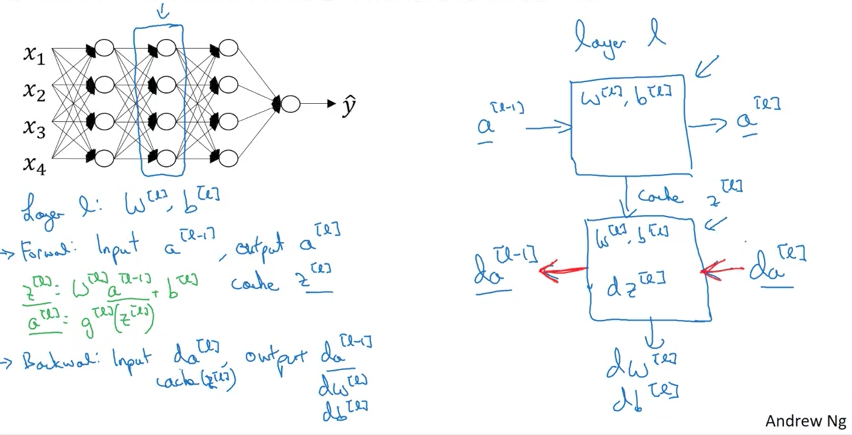 x₁
x₂
x₃
x₄
ŷ
Layer l: W^[l], b^[l]
→ Forward: Input a^[l-1], output a^[l]
cache z^[l]
z^[l] = W^[l] a^[l-1] + b^[l]
a^[l] = g^[l](z^[l])
→ Backward: Input da^[l], output da^[l-1]
cache(z^[l])
dW^[l]
db^[l]
layer l
a^[l-1]
W^[l], b^[l]
a^[l]
cache z^[l]
W^[l], b^[l]
da^[l-1]
dz^[l]
da^[l]
dW^[l]
db^[l]
Andrew Ng